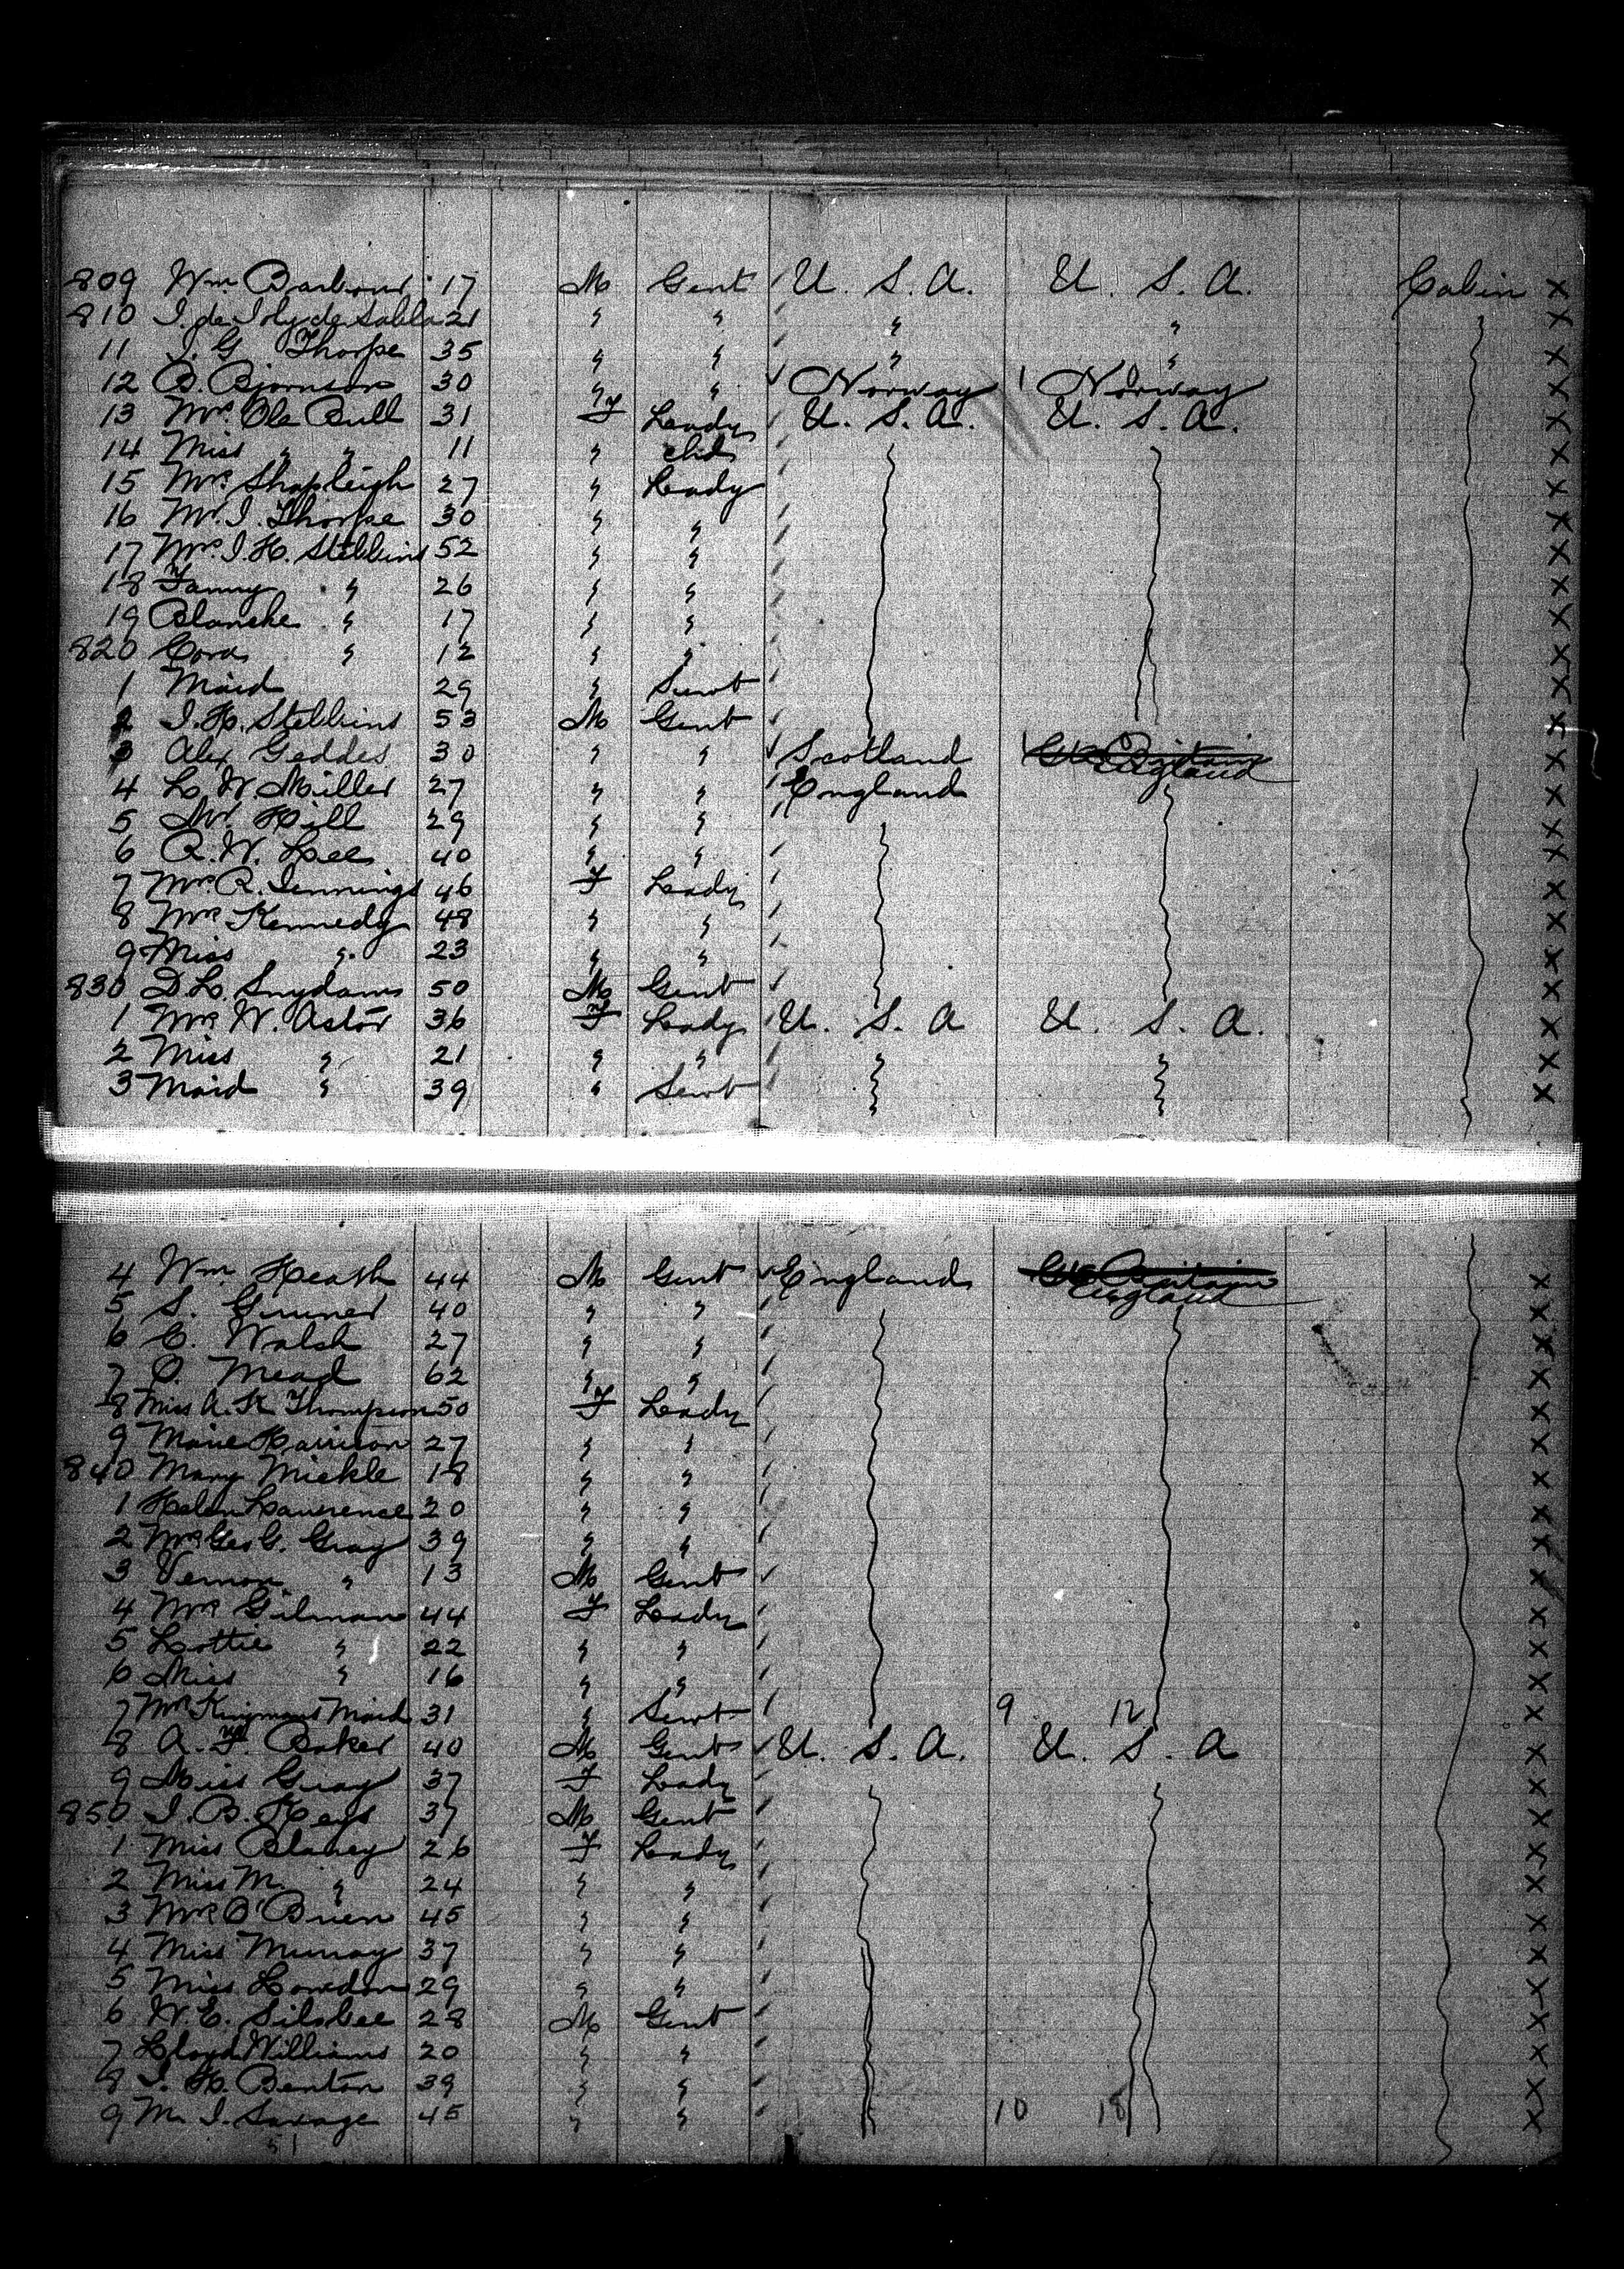 809 Wm Barbour 17 M Gent U. S. A. U. S. A. Cabin X
810 I. de Joly de Sabla 21 " " " " X
11 J. G Thorpe 35 " " " " X
12 B. Bjornson 30 " " Norway Norway X
13 Mrs Ole Bull 31 F Lady U. S. A. U. S. A. X
14 Miss " " 11 " chld X
15 Mrs Shapleigh 27 " Lady X
16 Mrs I. Thorpe 30 " " X
17 Mrs. I. H. Stebbins 52 " " X
18 Fanny " 26 " " X
19 Blanche " 17 " " X
820 Cora " 12 " " X
1 Maid 29 " Servt X
2 I. H. Stebbins 53 M Gent X
3 Alex Geddes 30 " " Scotland Gt Britain England X
4 L. W. Miller 27 " " England X
5 Mr. Hill 29 " " X
6 R. W. Lee 40 " " X
7 Mrs R. Jennings 46 F Lady X
8 Mrs Kennedy 48 " " X
9 Miss " 23 " " X
830 D. L. Suydam 50 M Gent X
1 Mrs W. Astor 36 F Lady U. S. A U. S. A. X
2 Miss " 21 " " X
3 Maid " 39 " Servt X
4 Wm Heath 44 M Gent England Gt Britain England X
5 S. 40 " " X
6 C. Walsh 27 " " X
7 O. Mead 62 " " X
8 Miss A. K Thompson 50 F Lady X
9 Marie Harrison 27 " " X
840 Mary Mickle 18 " " X
1 Helen Lawrence 20 " " X
2 Mrs Geo G. Gray 39 " " X
3 Vernon " 13 M Gent X
4 Mrs Gilman 44 F Lady X
5 Lottie " 22 " " X
6 Miss " 16 " " X
7 Mrs Kingmans Maid 31 " Servt 9 12 X
8 A. F. Baker 40 M Gent U. S. A. U. S. A X
9 Miss Gray 37 F Lady X
850 I. B. Hays 37 M Gent X
1 Miss Blaney 26 F Lady X
2 Miss M. " 24 " " X
3 Mrs O'Brien 45 " " X
4 Miss Murray 37 " " X
5 Miss 29 " " X
6 W. E. Silsbee 28 M Gent X
7 Lloyd Williams 20 " " X
8 J. H. Benton 39 " " X
9 M. J. Savage 45 " " 10 18 X
51